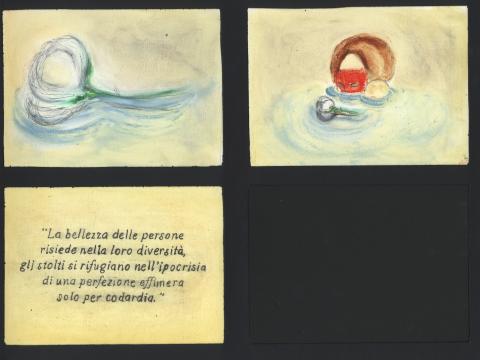 "La bellezza delle persone
risiede nella loro diversità,
gli stolti si rifugiano nell'ipocrisia
di una perfezione effimera
solo per codardia."